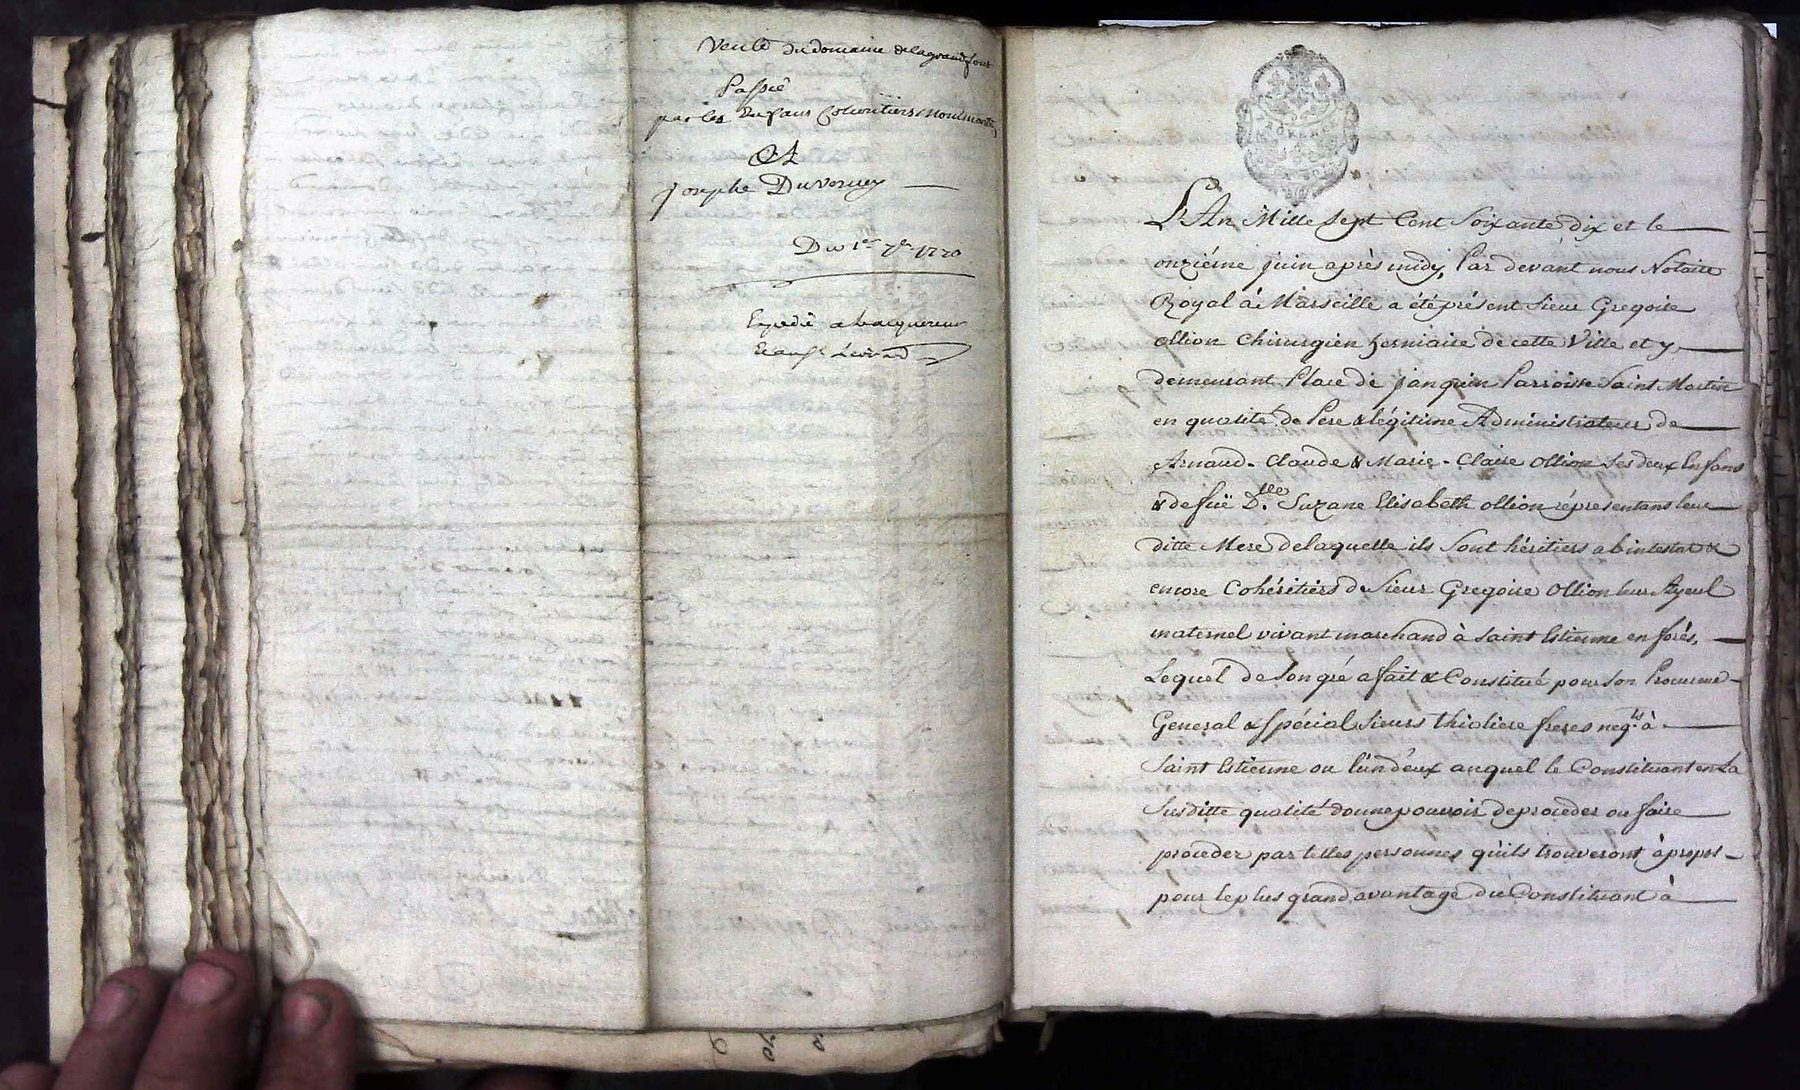 Vente du domaine de lagrandfont
Passée
par les Enfans Cohéritiers Moulinard
Et
josephe Duverney
Du 1er 7bre 1770
Expedié a lacquereur
PROVENCE
L'An Mille Sept Cent Soixante dix et le
onziéme juin après midy, Par devant nous Notaire
Royal à Marseille a été présent Sieur Gregoire
ollion Chirurgien herniaire de cette Ville et y
demeurant Place de janguin Parroisse Saint Martin
en qualité de Pere & légitime Administrateur de
Arnaud-Claude & Marie-Claire ollion Ses deux Enfans
& de fuë Dlle Suzane Elisabeth ollion réprésentans leur
ditte Mere de laquelle ils Sont héritiers abintestat &
encore Cohéritiers de Sieur Gregoire Ollion leur Ayeul
maternel vivant marchand à Saint Estienne en forés,
Lequel de Son gré a fait & Constitué pour Son Procureur
General & Spécial Sieurs thioliere freres negts à
Saint Estienne ou l'un d'eux auquel le Constituant en La
Susditte qualité donne pouvoir de proceder ou faire
proceder par telles personnes quils trouveront à propos
pour le plus grand avantage du Constituant à